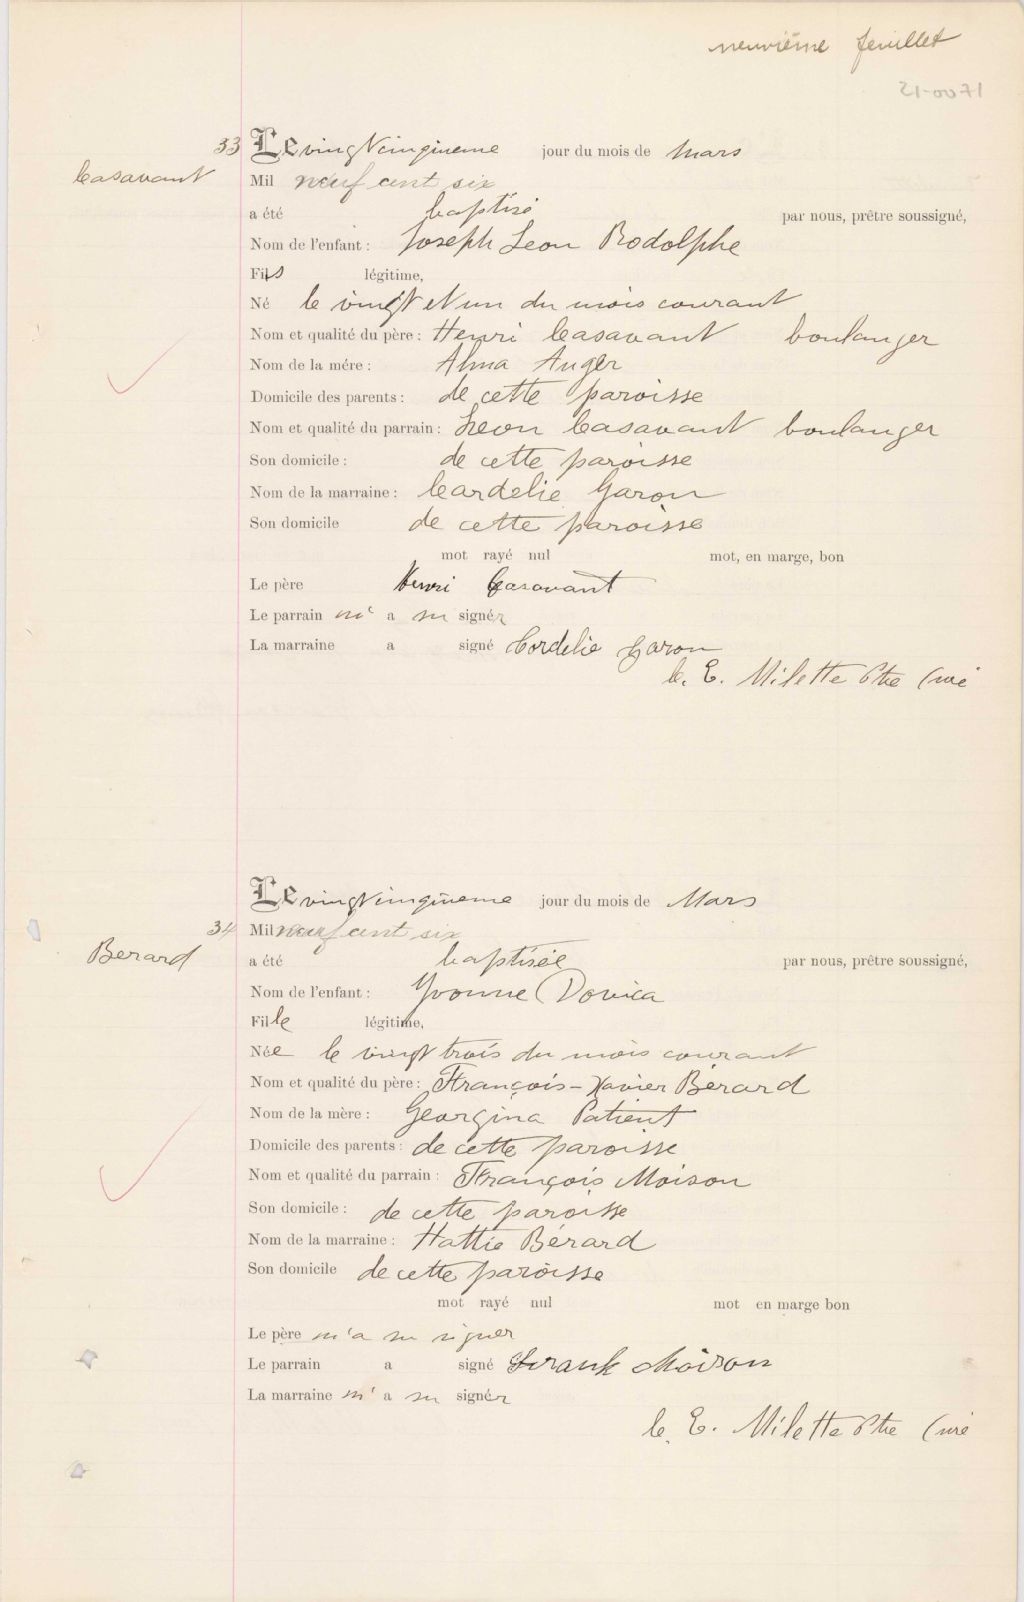 neuvième feuillet
21-0071
33 Le vingt cinquieme jour du mois de Mars
Casavant
Mil neuf cent six
a été baptisé par nous, prêtre soussigné,
Nom de l'enfant : Joseph Leon Rodolphe
Fils légitime,
Né le vingt et un du mois courant
Nom et qualité du père : Henri Casavant boulanger
Nom de la mére : Alma Auger
Domicile des parents : de cette paroisse
Nom et qualité du parrain : Leon Casavant boulanger
Son domicile : de cette paroisse
Nom de la marraine : Cardelie Garon
Son domicile de cette paroisse
mot rayé nul mot, en marge, bon
Le père Henri Casavant
Le parrain n' a su signer
La marraine a signé Cordelie Garon
C. E. Milette Ptre Curé
Le vingt cinquieme jour du mois de Mars
34 Mil neuf cent six
Berard
a été baptisée par nous, prêtre soussigné,
Nom de l'enfant : Yvonne Dorica
Fille légitime,
Née le vingt trois du mois courant
Nom et qualité du père : François-Xavier Bérard
Nom de la mère : Georgina Patient
Domicile des parents : de cette paroisse
Nom et qualité du parrain : François Moison
Son domicile : de cette paroisse
Nom de la marraine : Hattie Bérard
Son domicile de cette paroisse
mot rayé nul mot en marge bon
Le père n'a su signer
Le parrain a signé Frank Moison
La marraine n' a su signér
C. E. Milette Ptre Curé